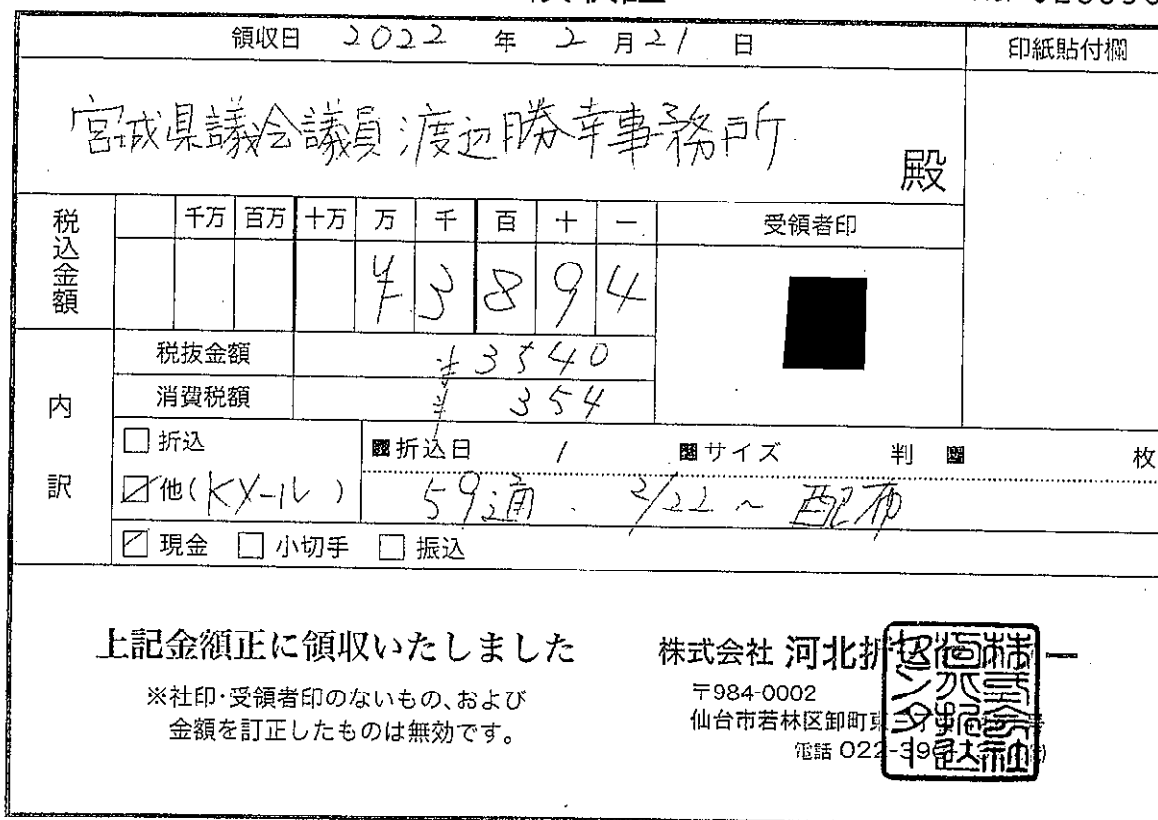 領収日 2022 年 2 月 21 日
印紙貼付欄
宮城県議会議員渡辺勝幸事務所
殿
税込金額
千万 百万 十万 万 千 百 十 一
受領者印
¥3894
内訳
税抜金額 ¥3540
消費税額 ¥ 354
□ 折込
折込日 / サイズ 判 枚
☑ 他( )
59通. 2/22 ~ 配布
☑ 現金 □ 小切手 □ 振込
上記金額正に領収いたしました
※社印・受領者印のないもの、および
金額を訂正したものは無効です。
株式会社 河北折込
〒984-0002
仙台市若林区卸町東
電話 022-39
株式会社河北折込センター